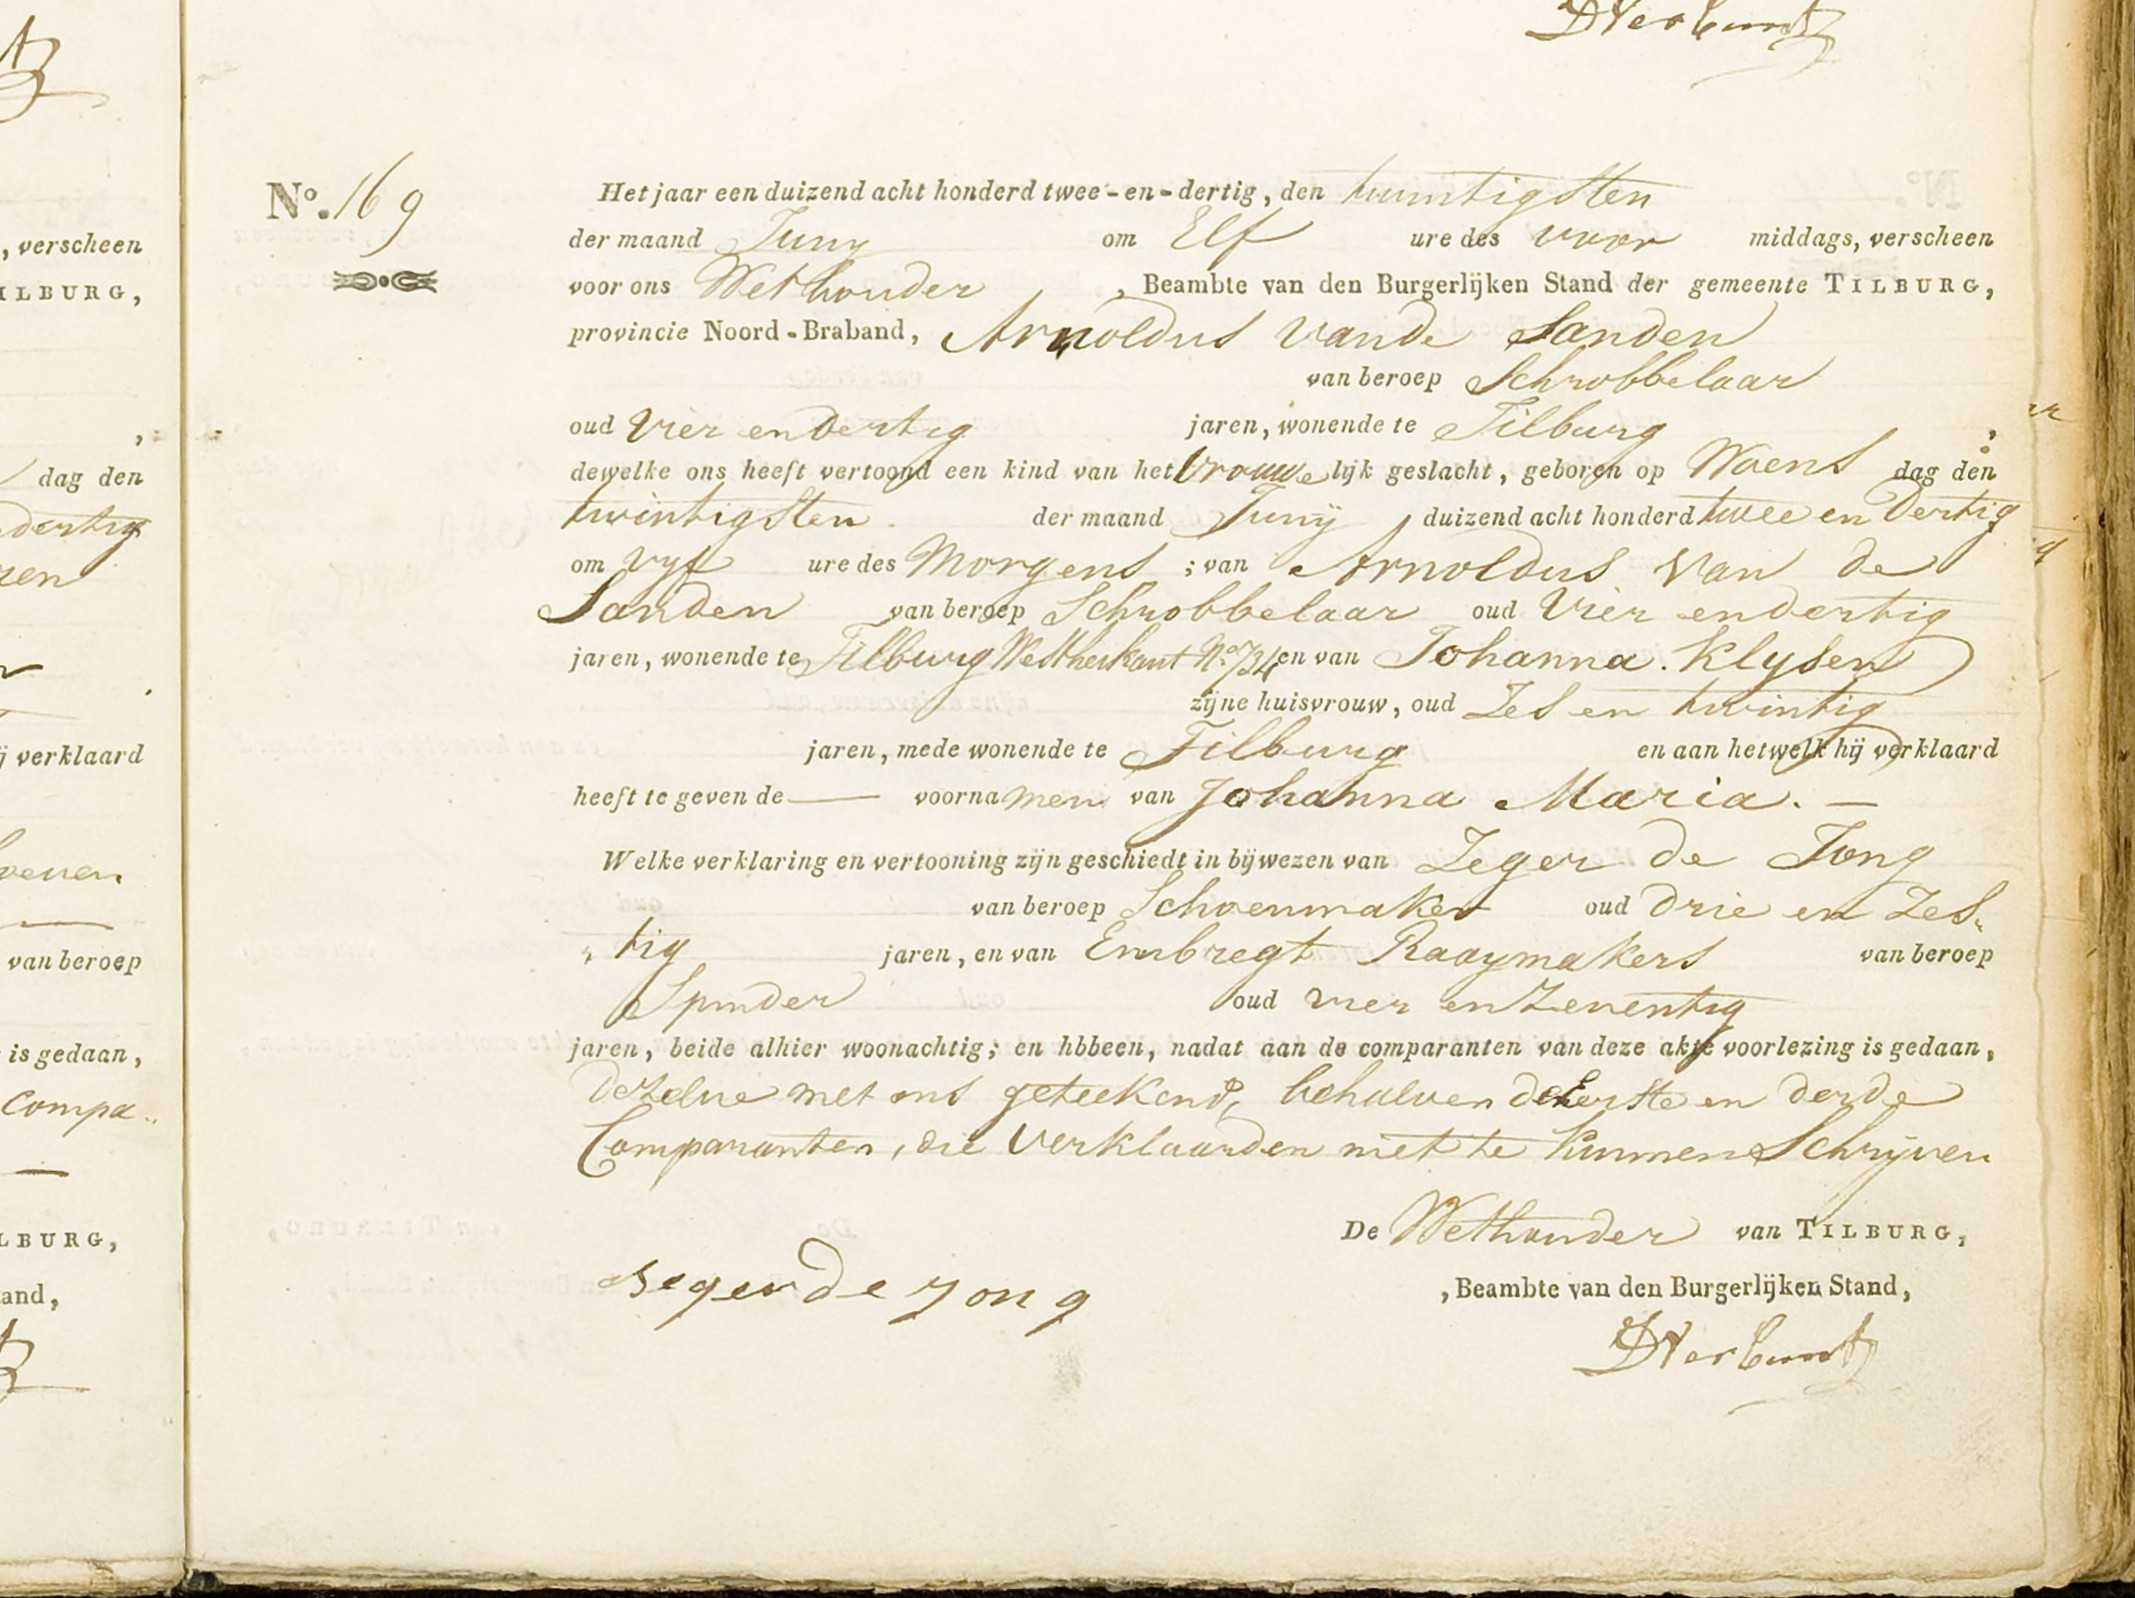 DVerbunt
, verscheen
ILBURG,
,
dag den
dertig
verklaard
van beroep
is gedaan,
Compa
LBURG,
and,
No. 169
Het jaar een duizend acht honderd twee-en-dertig, den twintigsten
der maand Juny om Elf ure des voor middags, verscheen
voor ons Wethouder , Beambte van den Burgerlijken Stand der gemeente TILBURG,
provincie Noord-Braband, Arnoldus van de Sanden
van beroep Schrobbelaar
oud Vier en dertig jaren, wonende te Tilburg ,
dewelke ons heeft vertoond een kind van het Vrouwelijk geslacht, geboren op Woens dag den
twintigsten der maand Junij duizend acht honderd twee en dertig
om vyf ure des Morgens ; van Arnoldus van de
Sanden van beroep Schrobbelaar oud Vier en dertig
jaren, wonende te Tilburg No. en van Johanna Klysen
zijne huisvrouw, oud Zes en twintig
jaren, mede wonende te Tilburg en aan hetwelk hij verklaard
heeft te geven de — voornamen van Johanna Maria. —
Welke verklaring en vertooning zijn geschiedt in bijwezen van Zeger de Jong
van beroep Schoenmaker oud drie en Zes„
„tig jaren, en van Embregt Raaymakers van beroep
Spinder oud vier en Zeventig
jaren, beide alhier woonachtig; en hbbeen, nadat aan de comparanten van deze akte voorlezing is gedaan,
dezelve met ons geteekend, behalven de Eerste en derde
Comparanten, die verklaarden niet te kunnen Schrijven
De Wethouder van TILBURG,
, Beambte van den Burgerlijken Stand,
segerde jong
DVerbunt